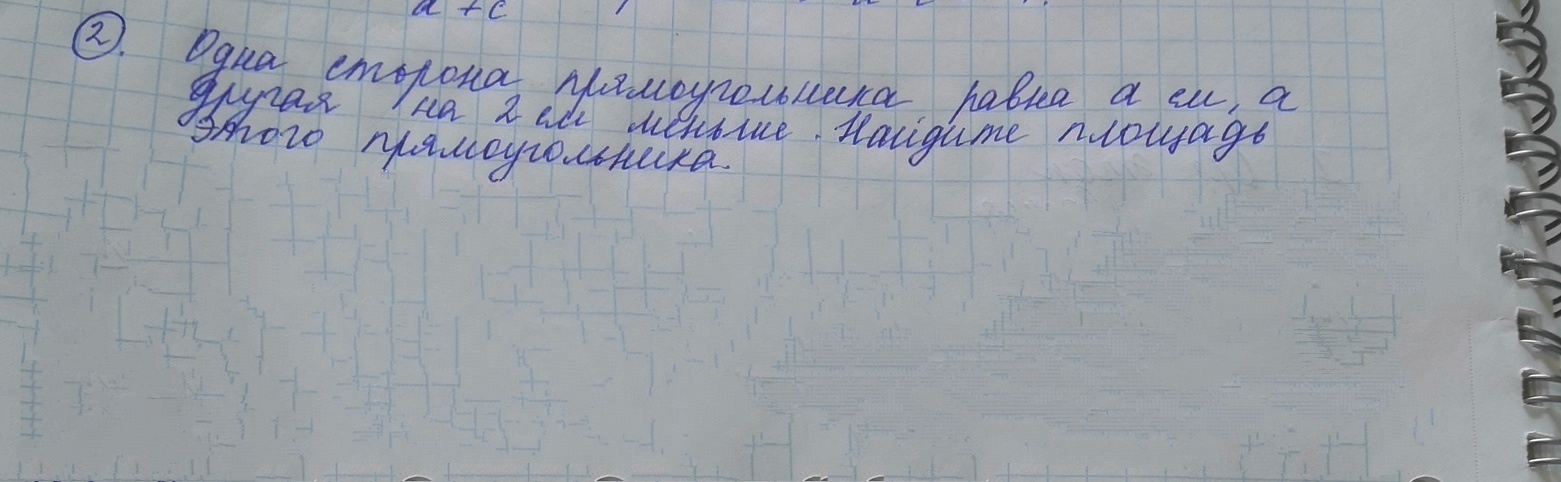 a + c
2. Одна сторона прямоугольника равна a см, а
другая на 2 см меньше. Найдите площадь
этого прямоугольника.